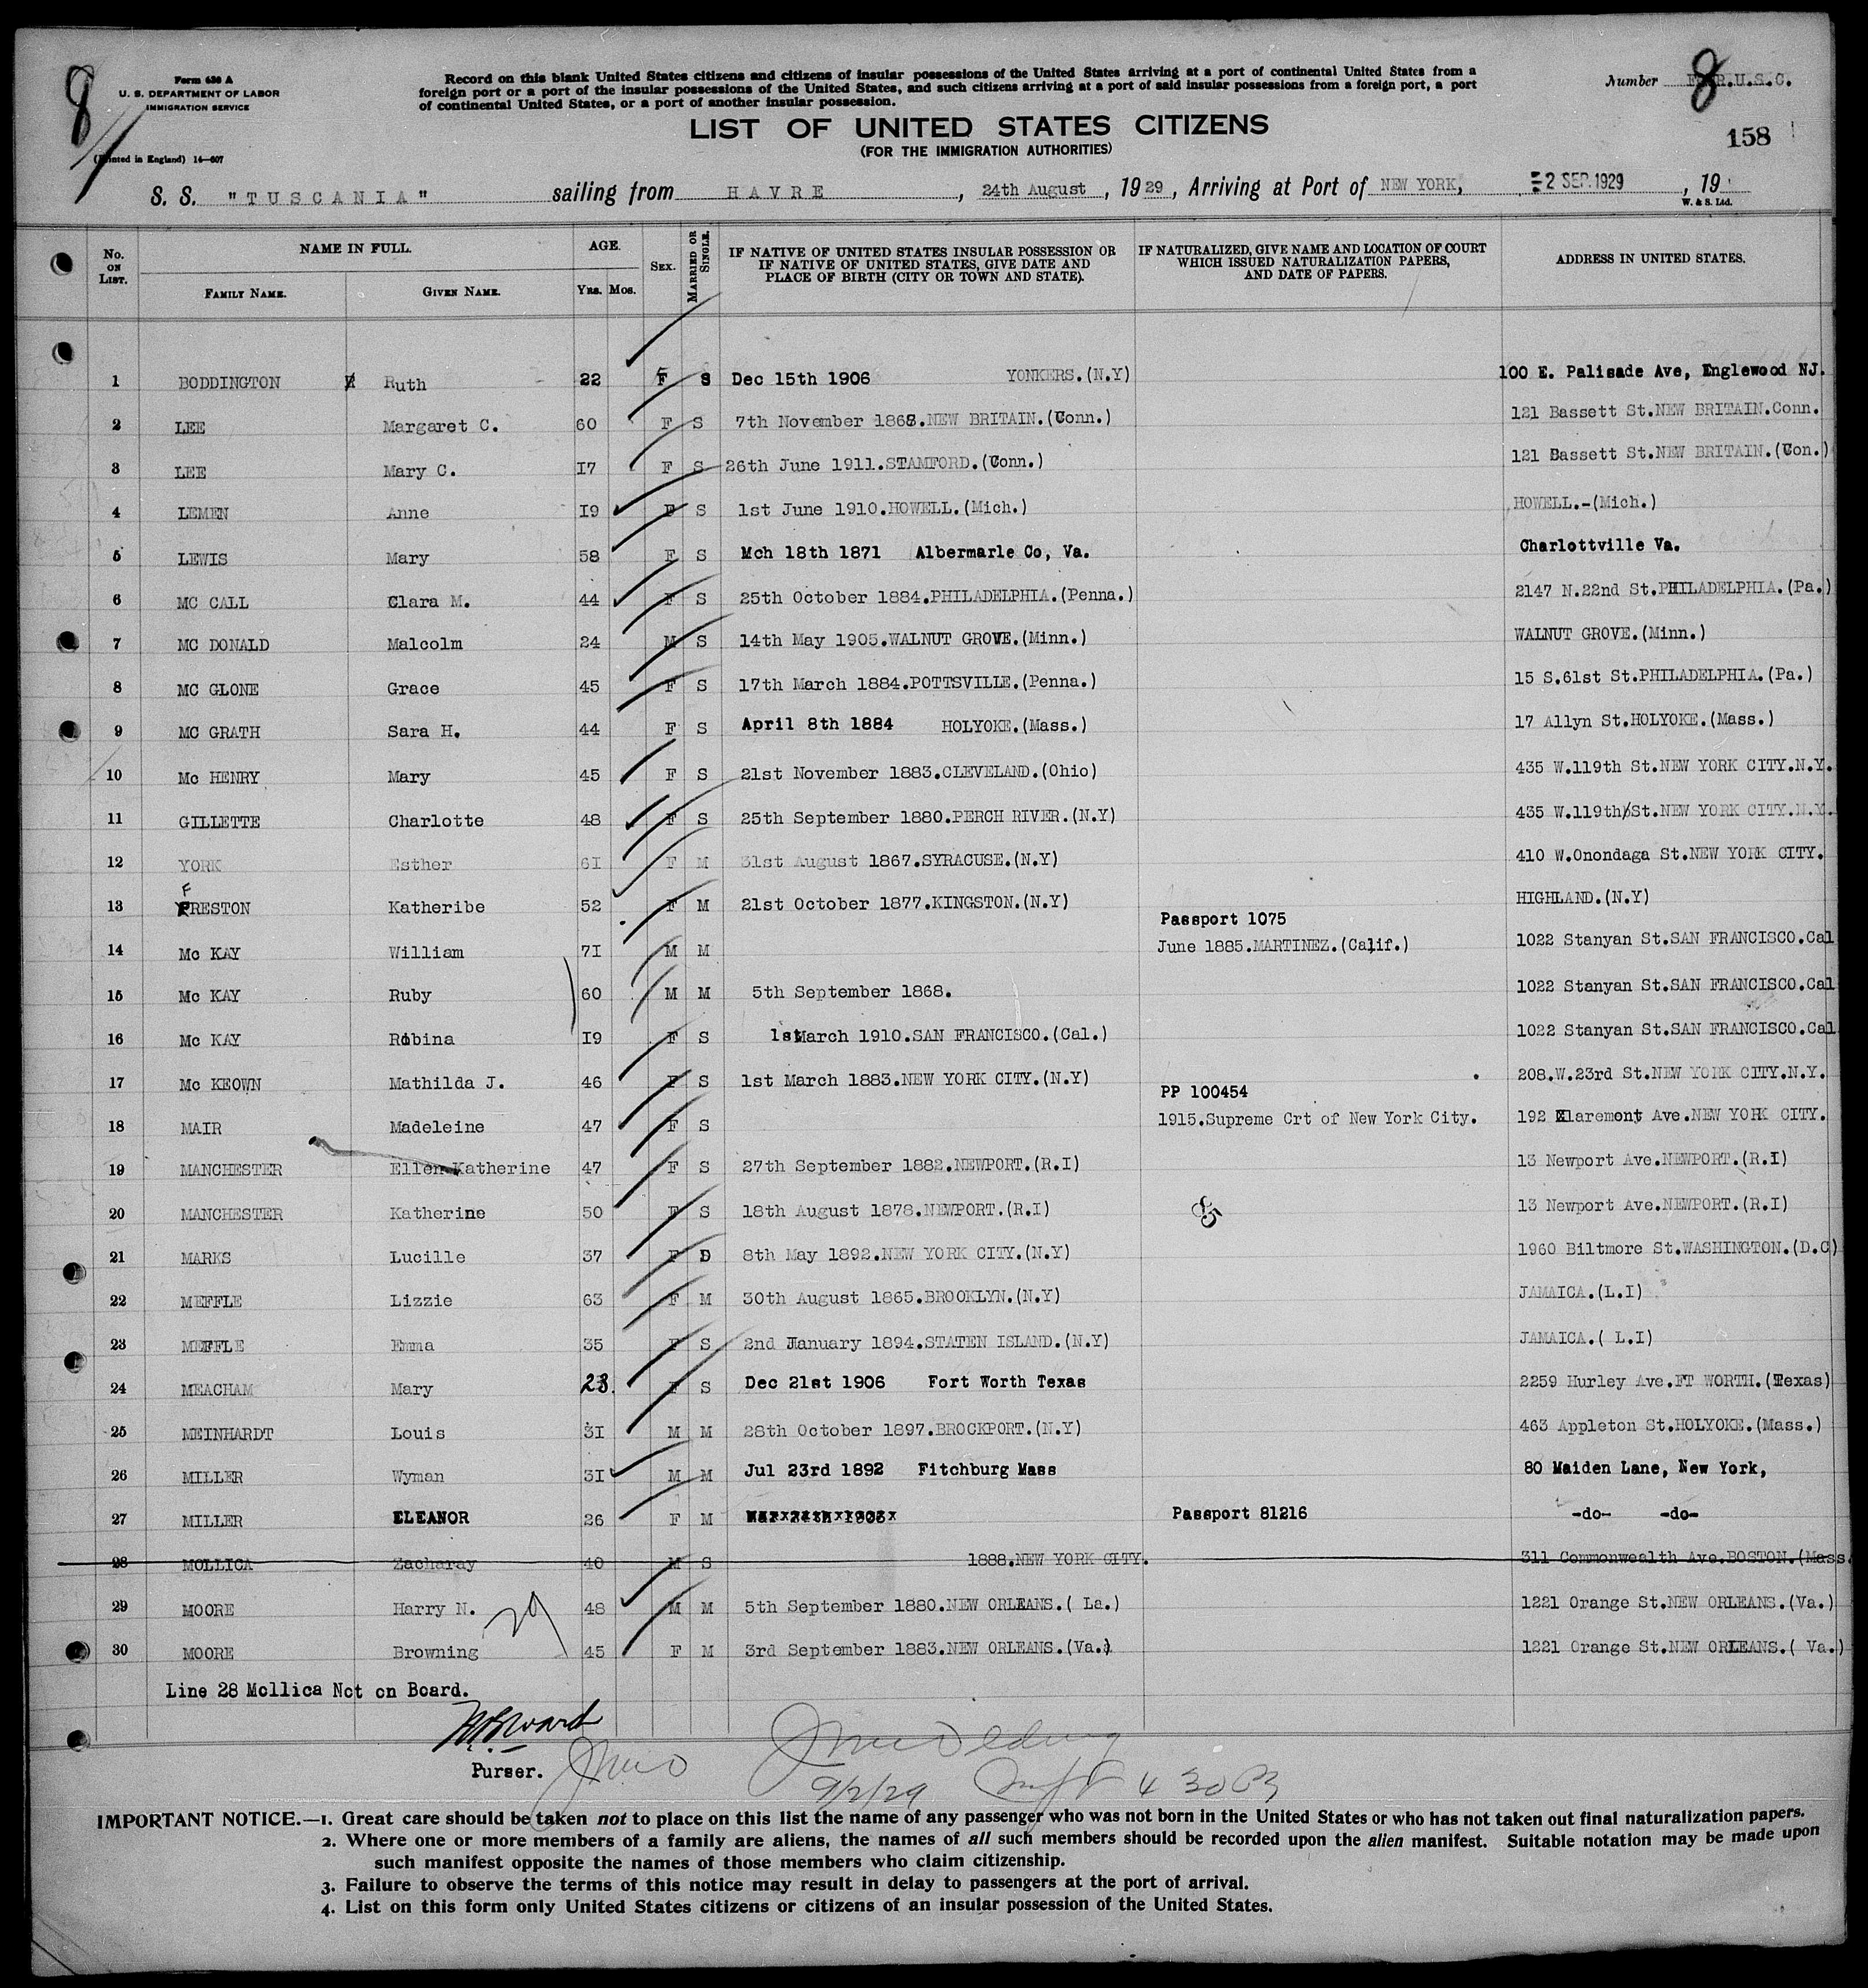 8
Form 630 A
U. S. DEPARTMENT OF LABOR
IMMIGRATION SERVICE
(Printed in England) 14—607
Record on this blank United States citizens and citizens of insular possessions of the United States arriving at a port of continental United States from a
foreign port or a port of the insular possessions of the United States, and such citizens arriving at a port of said insular possessions from a foreign port, a port
of continental United States, or a port of another insular possession.
Number 8 R.U.S.C.
LIST OF UNITED STATES CITIZENS
(FOR THE IMMIGRATION AUTHORITIES)
158
S. S. "TUSCANIA" sailing from HAVRE, 24th August, 1929, Arriving at Port of NEW YORK, 2 SEP. 1929, 19
W. & S. Ltd.
No. ON LIST. NAME IN FULL. AGE. SEX. MARRIED OR SINGLE. IF NATIVE OF UNITED STATES INSULAR POSSESSION OR IF NATIVE OF UNITED STATES, GIVE DATE AND PLACE OF BIRTH (CITY OR TOWN AND STATE). IF NATURALIZED, GIVE NAME AND LOCATION OF COURT WHICH ISSUED NATURALIZATION PAPERS, AND DATE OF PAPERS. ADDRESS IN UNITED STATES.
FAMILY NAME. GIVEN NAME. Yrs. Mos.
1 BODDINGTON Ruth 22 F S Dec 15th 1906 YONKERS.(N.Y) 100 E. Palisade Ave, Englewood NJ.
2 LEE Margaret C. 60 F S 7th November 1868.NEW BRITAIN.(Conn.) 121 Bassett St.NEW BRITAIN.Conn.
3 LEE Mary C. I7 F S 26th June 1911.STAMFORD.(Conn.) 121 Bassett St.NEW BRITAIN.(Con.)
4 LEMEN Anne I9 F S 1st June 1910.HOWELL.(Mich.) HOWELL.-(Mich.)
5 LEWIS Mary 58 F S Mch 18th 1871 Albermarle Co, Va. Charlottville Va.
6 MC CALL Clara M. 44 F S 25th October 1884.PHILADELPHIA.(Penna.) 2147 N.22nd St.PHILADELPHIA.(Pa.)
7 MC DONALD Malcolm 24 M S 14th May 1905.WALNUT GROVE.(Minn.) WALNUT GROVE.(Minn.)
8 MC GLONE Grace 45 F S 17th March 1884.POTTSVILLE.(Penna.) 15 S.61st St.PHILADELPHIA.(Pa.)
9 MC GRATH Sara H. 44 F S April 8th 1884 HOLYOKE.(Mass.) 17 Allyn St.HOLYOKE.(Mass.)
10 Mc HENRY Mary 45 F S 21st November 1883.CLEVELAND.(Ohio) 435 W.119th St.NEW YORK CITY.N.Y.
11 GILLETTE Charlotte 48 F S 25th September 1880.PERCH RIVER.(N.Y) 435 W.119th St.NEW YORK CITY.N.Y.
12 YORK Esther 6I F M 31st August 1867.SYRACUSE.(N.Y) 410 W.Onondaga St.NEW YORK CITY.
13 FRESTON Katheribe 52 F M 21st October 1877.KINGSTON.(N.Y) HIGHLAND.(N.Y)
Passport 1075
14 Mc KAY William 7I M M June 1885.MARTINEZ.(Calif.) 1022 Stanyan St.SAN FRANCISCO.Cal
15 Mc KAY Ruby 60 M M 5th September 1868. 1022 Stanyan St.SAN FRANCISCO.Cal
16 Mc KAY Robina I9 F S 1st March 1910.SAN FRANCISCO.(Cal.) 1022 Stanyan St.SAN FRANCISCO.Cal
17 Mc KEOWN Mathilda J. 46 F S 1st March 1883.NEW YORK CITY.(N.Y) 208.W.23rd St.NEW YORK CITY.N.Y.
PP 100454
18 MAIR Madeleine 47 F S 1915.Supreme Crt of New York City. 192 Claremont Ave.NEW YORK CITY.
19 MANCHESTER Ellen Katherine 47 F S 27th September 1882.NEWPORT.(R.I) 13 Newport Ave.NEWPORT.(R.I)
20 MANCHESTER Katherine 50 F S 18th August 1878.NEWPORT.(R.I) 13 Newport Ave.NEWPORT.(R.I)
21 MARKS Lucille 37 F D 8th May 1892.NEW YORK CITY.(N.Y) 1960 Biltmore St.WASHINGTON.(D.C)
22 MEFFLE Lizzie 63 F M 30th August 1865.BROOKLYN.(N.Y) JAMAICA.(L.I)
23 MEFFLE Emma 35 F S 2nd January 1894.STATEN ISLAND.(N.Y) JAMAICA.( L.I)
24 MEACHAM Mary 23. F S Dec 21st 1906 Fort Worth Texas 2259 Hurley Ave.FT WORTH.(Texas)
25 MEINHARDT Louis 3I M M 28th October 1897.BROCKPORT.(N.Y) 463 Appleton St.HOLYOKE.(Mass.)
26 MILLER Wyman 3I M M Jul 23rd 1892 Fitchburg Mass 80 Maiden Lane, New York,
27 MILLER ELEANOR 26 F M Passport 81216 -do- -do-
28 MOLLICA Zacharay 40 M S 1888.NEW YORK CITY. 311 Commonwealth Ave.BOSTON.(Mass.
29 MOORE Harry N. 48 M M 5th September 1880.NEW ORLEANS.( La.) 1221 Orange St.NEW ORLEANS.(Va.)
30 MOORE Browning 45 F M 3rd September 1883.NEW ORLEANS.(Va.) 1221 Orange St.NEW ORLEANS.( Va.)
Line 28 Mollica Not on Board.
Purser.
9/2/29
IMPORTANT NOTICE.—1. Great care should be taken not to place on this list the name of any passenger who was not born in the United States or who has not taken out final naturalization papers.
2. Where one or more members of a family are aliens, the names of all such members should be recorded upon the alien manifest. Suitable notation may be made upon
such manifest opposite the names of those members who claim citizenship.
3. Failure to observe the terms of this notice may result in delay to passengers at the port of arrival.
4. List on this form only United States citizens or citizens of an insular possession of the United States.